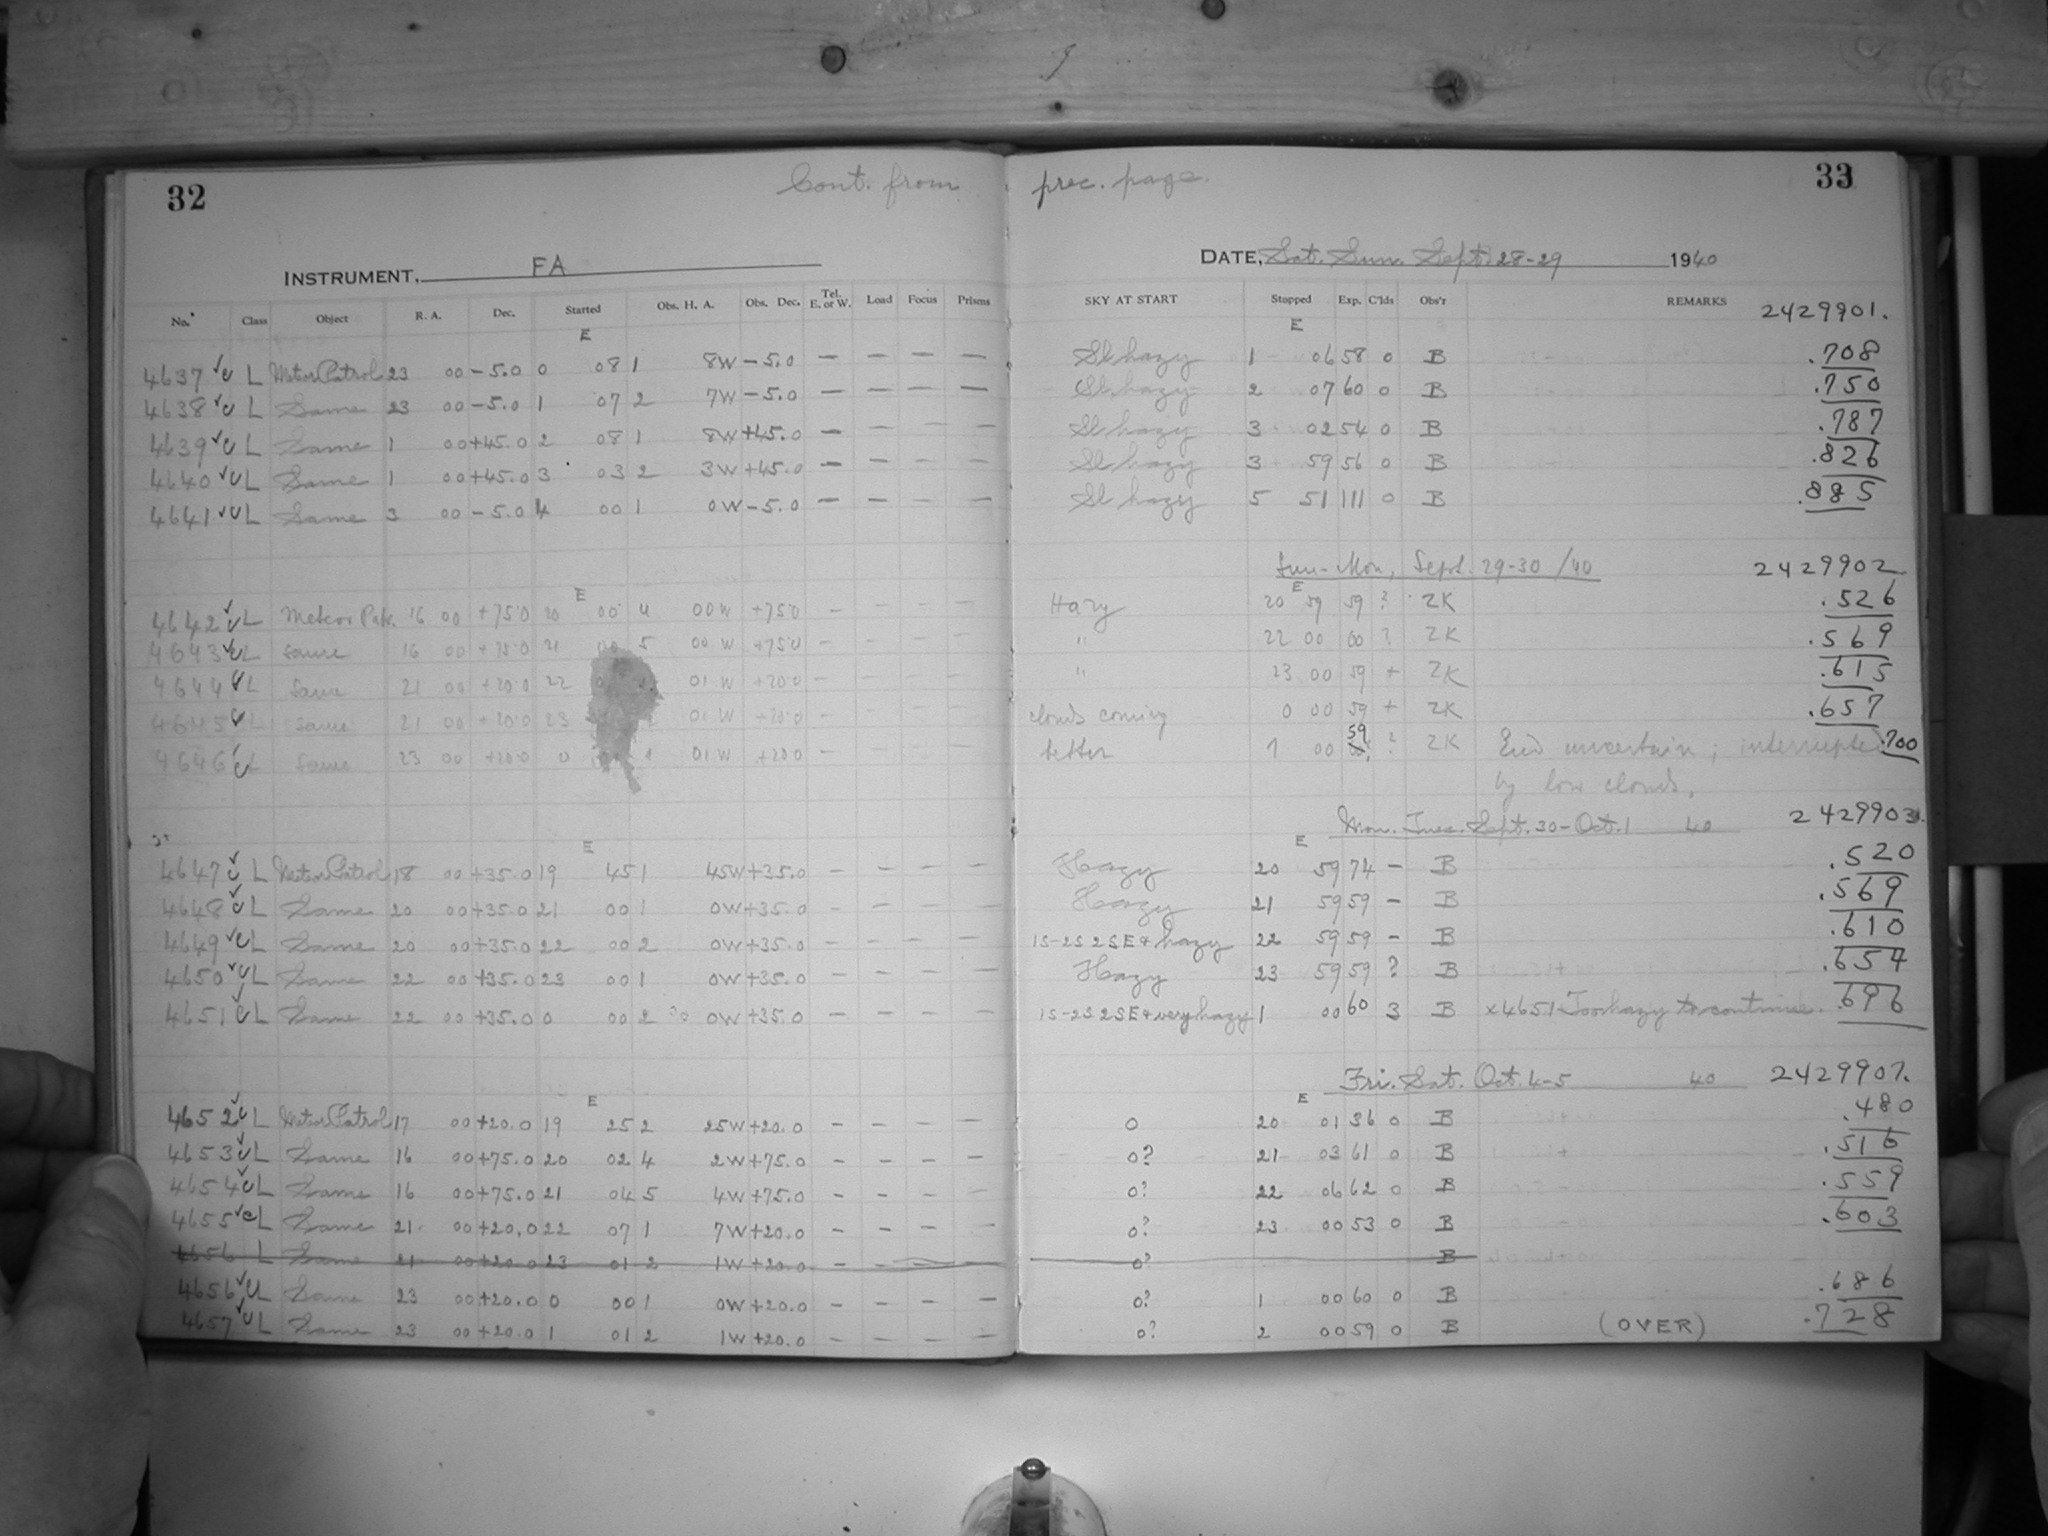 32
Cont. from prec. page.
33
INSTRUMENT, FA
DATE, Sat. Sun. Sept. 28-29 1940
No. Class Object R. A. Dec. Started Obs. H. A. Obs. Dec. Tel. E. or W. Load Focus Prisms SKY AT START Stopped Exp. C'lds Obs'r REMARKS 2429901.
E E
4637 L Meteor Patrol 23 00 -5.0 0 08 1 8W -5.0 — — — — Sl. hazy 1 06 58 0 B .708
4638 L Same 23 00 -5.0 1 07 2 7W -5.0 — — — — Sl. hazy 2 07 60 0 B .750
4639 L Same 1 00 +45.0 2 08 1 8W +45.0 — — — — Sl hazy 3 02 54 0 B .787
4640 L Same 1 00 +45.0 3 03 2 3W +45.0 — — — — Sl hazy 3 59 56 0 B .826
4641 L Same 3 00 -5.0 4 00 1 0W -5.0 — — — — Sl hazy 5 51 111 0 B .885
Sun-Mon, Sept. 29-30 /40 2429902
E E
4642 L Meteor Patr. 16 00 +75.0 20 00 4 00 W +75.0 — — — — Hazy 20 59 59 ? ZK .526
4643 L same 16 00 +75.0 21 5 00 W +75.0 — — — — " 22 00 60 ? ZK .569
4644 L Same 21 00 +20.0 22 01 W +20.0 — — — — " 23 00 59 + ZK .615
4645 L Same 21 00 +20.0 23 01 W +20.0 — — — — clouds coming 0 00 59 + ZK .657
4646 L Same 23 00 +20.0 0 1 01 W +20.0 — — — — better 1 00 59 ? ZK End uncertain; interrupted .700
by low clouds.
Mon. Tues. Sept. 30-Oct. 1 40 2429903.
E E
4647 L Meteor Patrol 18 00 +35.0 19 45 1 45W +35.0 — — — — Hazy 20 59 74 — B .520
4648 L Same 20 00 +35.0 21 00 1 0W +35.0 — — — — Hazy 21 59 59 — B .569
4649 L Same 20 00 +35.0 22 00 2 0W +35.0 — — — — 1S-2S 2SE+ hazy 22 59 59 — B .610
4650 L Same 22 00 +35.0 23 00 1 0W +35.0 — — — — Hazy 23 59 59 ? B .654
4651 L Same 22 00 +35.0 0 00 2 0W +35.0 — — — — 1S-2S 2SE+ very hazy 1 00 60 3 B x4651 Too hazy to continue. .696
Fri. Sat. Oct. 4-5 40 2429907.
E E
4652 L Meteor Patrol 17 00 +20.0 19 25 2 25W +20.0 — — — — 0 20 01 36 0 B .480
4653 L Same 16 00 +75.0 20 02 4 2W +75.0 — — — — 0? 21 03 61 0 B .516
4654 L Same 16 00 +75.0 21 04 5 4W +75.0 — — — — 0? 22 06 62 0 B .559
4655 L Same 21 00 +20.0 22 07 1 7W +20.0 — — — — 0? 23 00 53 0 B .603
4656 L Same 21 00 +20.0 23 01 2 1W +20.0 — — 0? B
4656 L Same 23 00 +20.0 0 00 1 0W +20.0 — — — — 0? 1 00 60 0 B .686
4657 L Same 23 00 +20.0 1 01 2 1W +20.0 — — — — 0? 2 00 59 0 B (OVER) .728